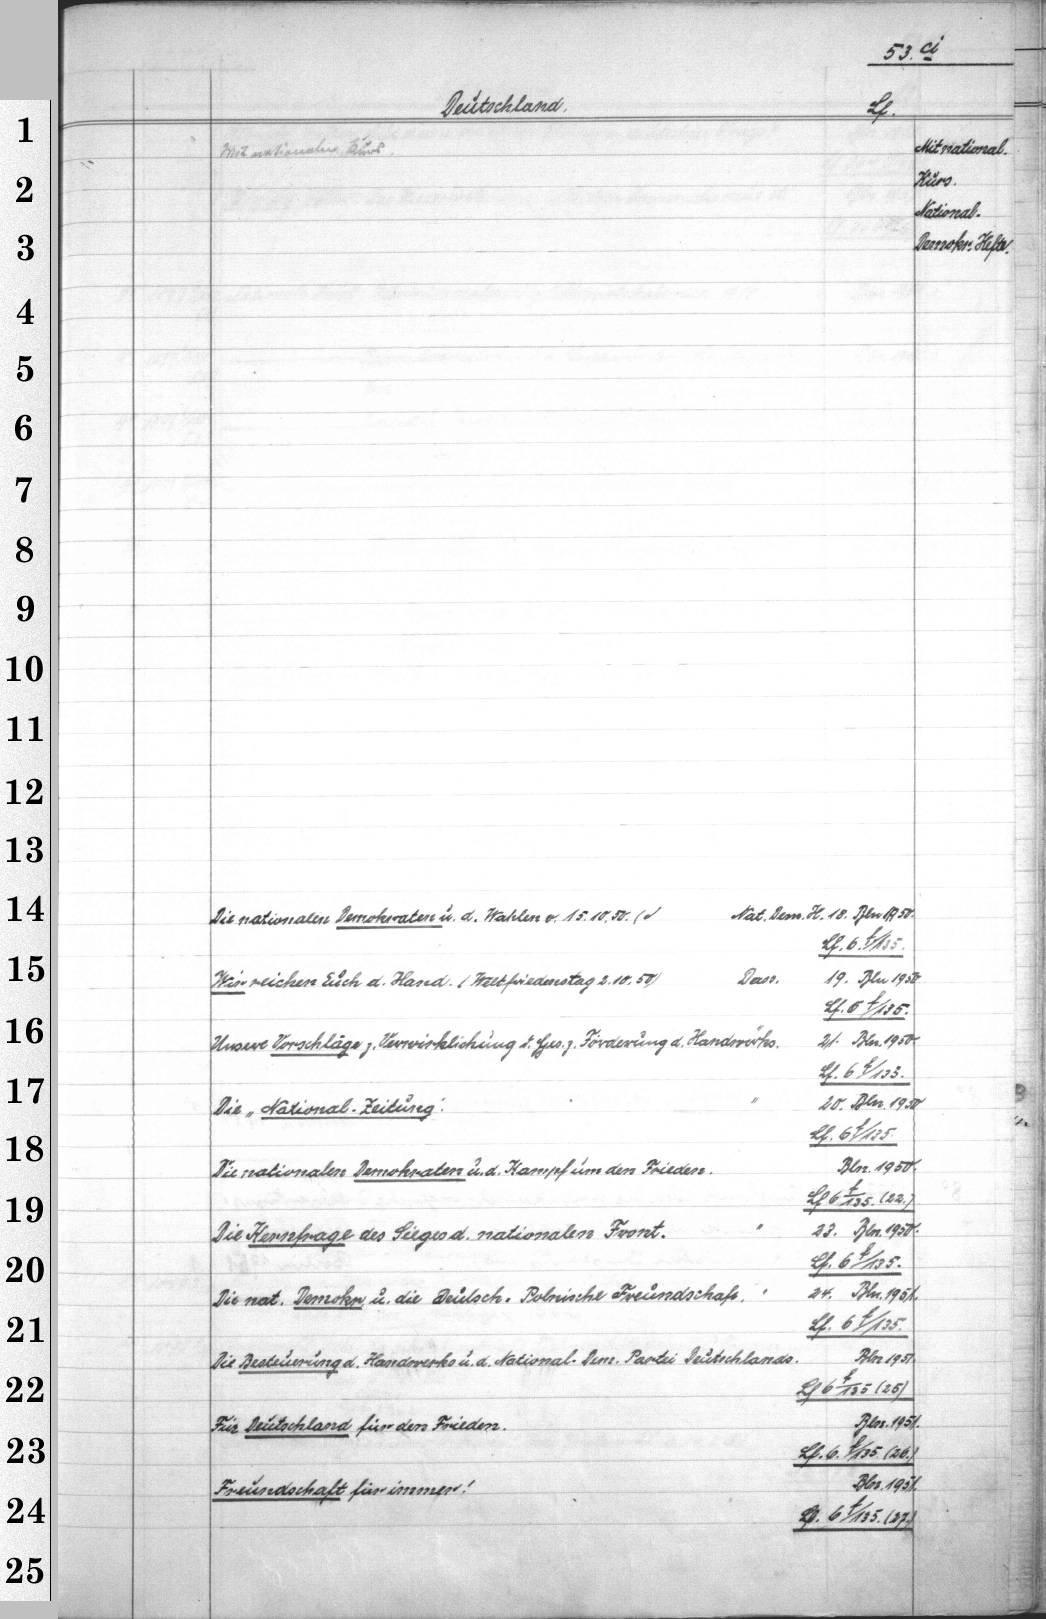 53. ci
Deutschland. Lf.
1
Mit nationalem Kurs.
Mit national.
2
Kurs.
National-
3
Demokr. Hefte.
4
5
6
7
8
9
10
11
12
13
14
Die nationalen Demokraten u. d. Wahlen v. 15.10.50. Nat. Dem. H. 18. Bln 1950.
Lf. 6 t/135.
15
Wir reichen Euch d. Hand. (Weltfriedenstag 2.10.50) Dass. 19. Bln 1950
Lf. 6 t/135.
16
Unsere Vorschläge z. Verwirklichung d. Ges. z. Förderung d. Handwerks. 21. Bln. 1950.
Lf. 6 t/135.
17
Die „National-Zeitung". " 20. Bln. 1950
Lf. 6 t/135
18
Die nationalen Demokraten u. d. Kampf um den Frieden. Bln. 1950.
Lf 6 t/135. (22.)
19
Die Kernfrage des Sieges d. nationalen Front. " 23. Bln. 1950.
Lf. 6 t/135.
20
Die nat. Demokr. u. die Deutsch-Polnische Freundschaft. " 24. Bln. 1951.
Lf. 6 t/135.
21
Die Besteuerung d. Handwerks u. d. National-Dem. Partei Deutschlands. Bln 1951.
22
Lf 6 t/135 (25)
Für Deutschland für den Frieden. Bln. 1951.
23
Lf. 6. t/135 (26.)
Freundschaft für immer! Bln. 1951.
24
Lf. 6 t/135. (27.)
25